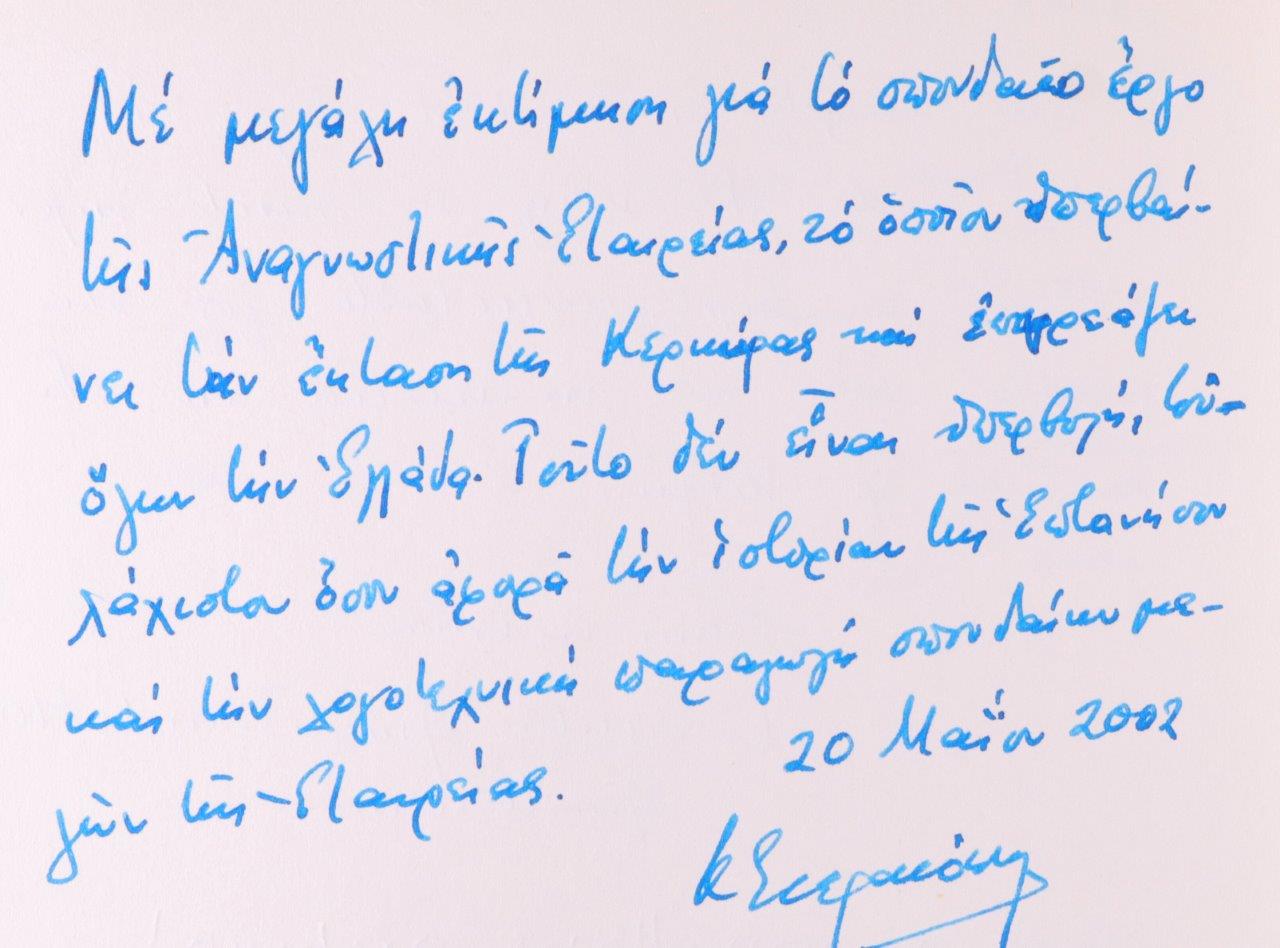 Μέ μεγάλη ἐκτίμηση γιά τό σπουδαῖο ἔργο
τῆς Ἀναγνωστικῆς Ἑταιρείας, τό ὁποῖον ὑπερβαί-
νει τήν ἔκταση τῆς Κερκύρας καί ἐπηρεάζει
ὅλην τήν Ἑλλάδα. Τοῦτο δέν εἶναι ὑπερβολή, τοὐ-
λάχιστον ὅσον ἀφορᾶ τήν ἱστορίαν τῆς Ἑπτανήσου
καί τήν λογοτεχνική παραγωγή σπουδαίων με-
λῶν τῆς Ἑταιρείας.
20 Μαΐου 2002